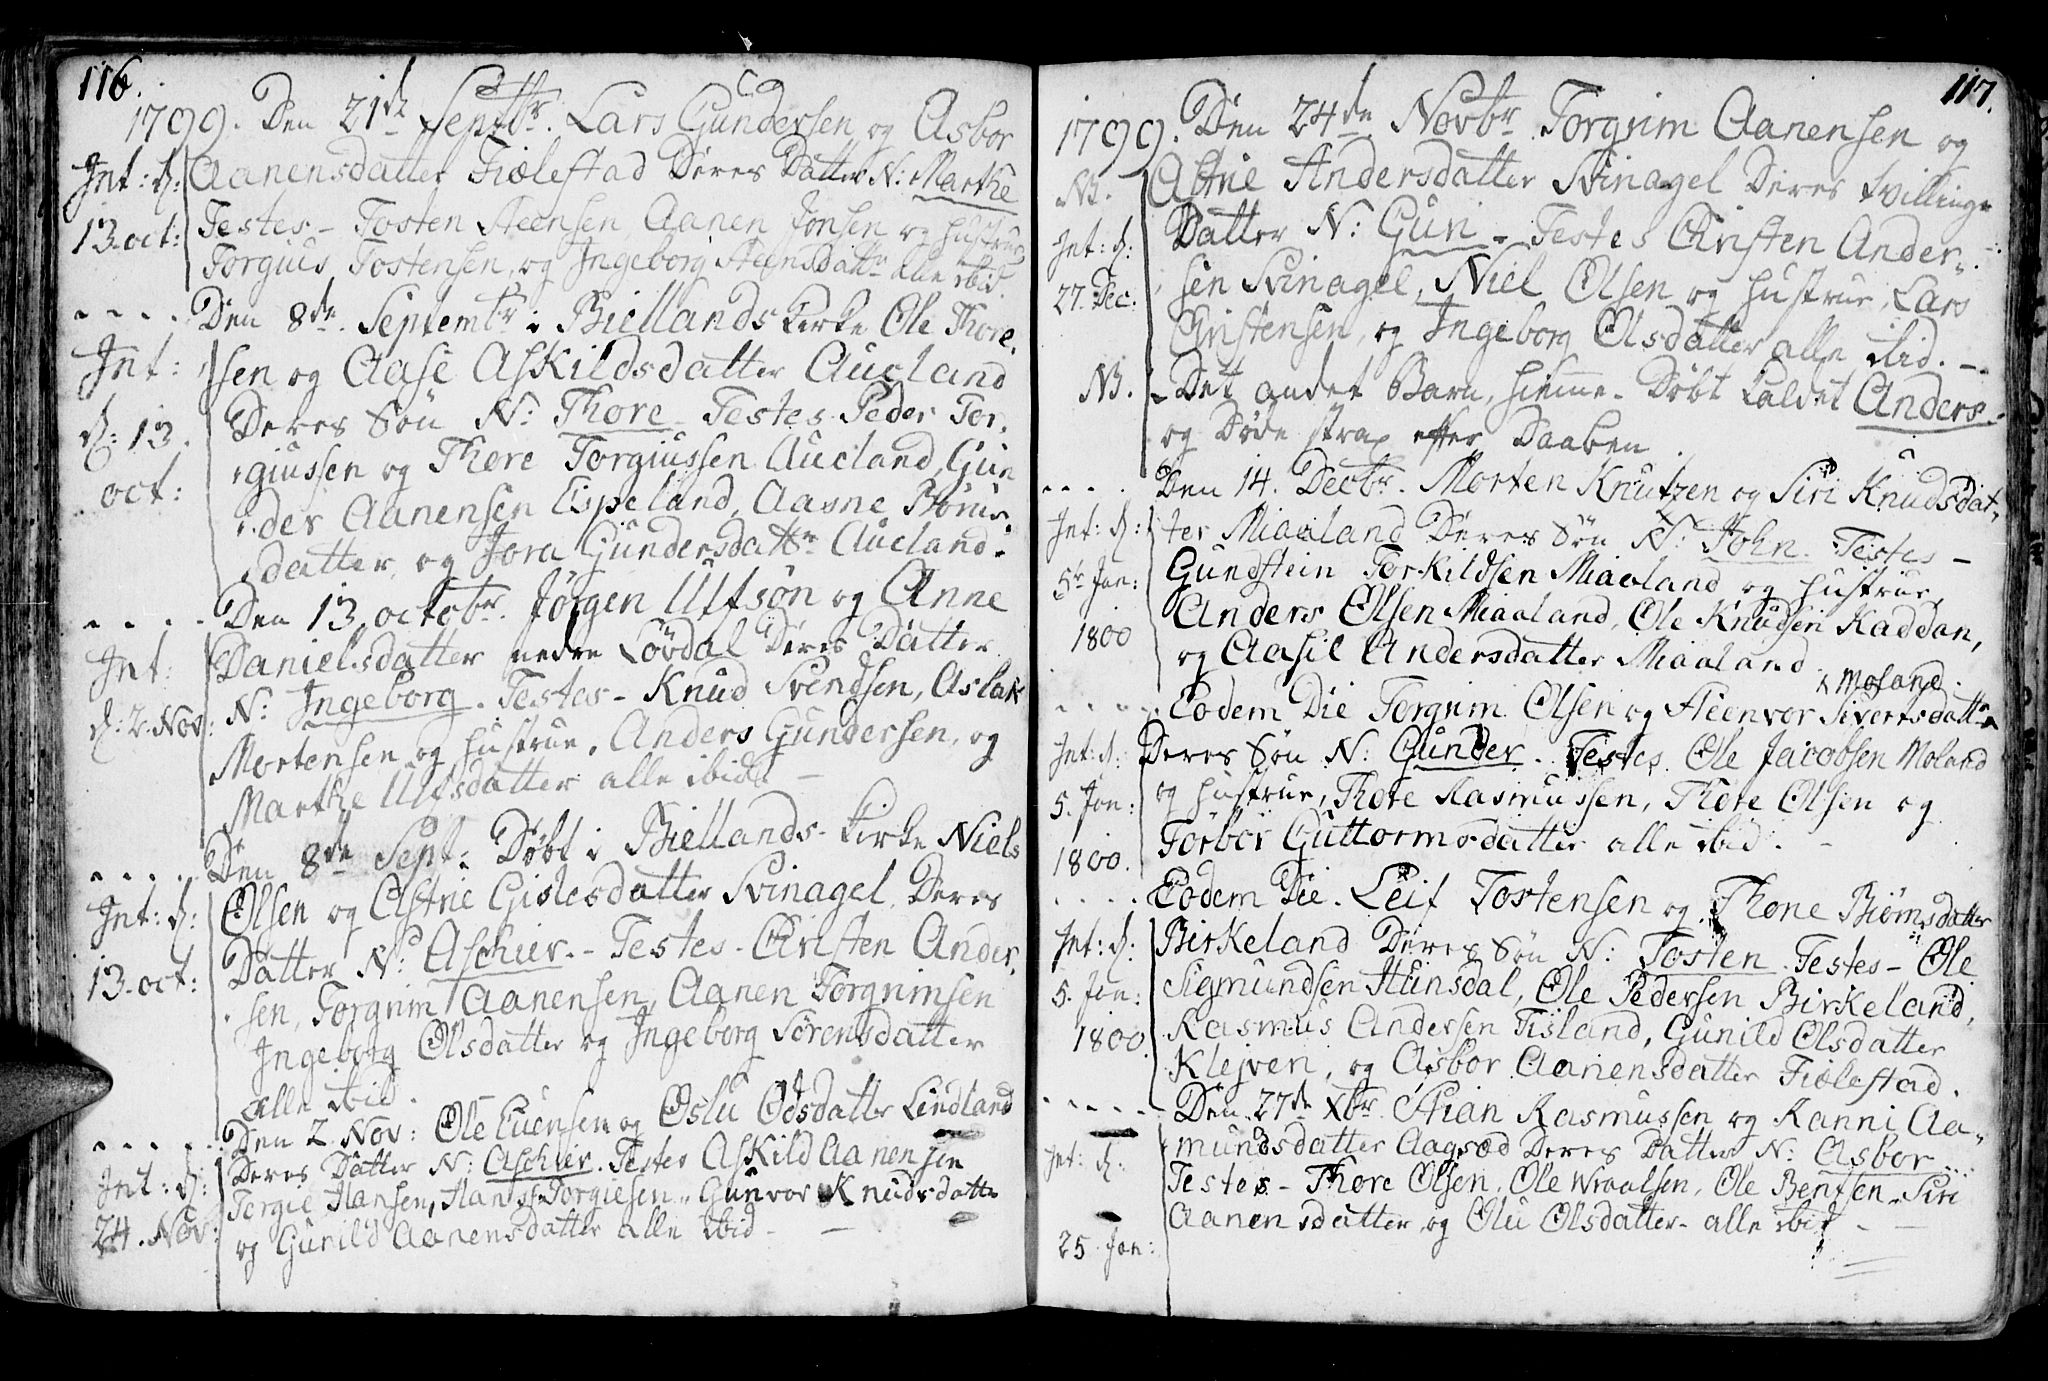 116.
1799. Den 21de Septbr. Lars Gundersen og Asbor
Int: d: Aanensdatter Fiælestad Deres Datter N: Marthe
13. oct: Testes - Tosten Steensen, Aanen Jonsen og Hustrue
Torgius Tostensen, og Ingeborg Steensdattr alle ibid
- - - - Den 8de Septembr i Biellands Kirke Ole Thore,
Int: sen og Aase Askildsdatter Aucland
Deres Søn N: Thore Testes Peder Tor,
d: 13. giussen og Thore Torgiussen Aucland, Gun
oct: der Aanensen Espeland, Aasne
datter, og Jora Gundersdattr Aucland.
- - - - Den 13 octobr. Jörgen Ulfsön og Anne
Int: Danielsdatter nedre Lövdal Deres Datter
d: 2. Nov: N: Ingeborg. Testes - Knud Svendsen, Aslak
Mortensen og Hustrue, Anders Gundersen, og
Marthe Ulfsdatter alle ibid. -
- - - - Den 8de Sept: Døbt i Biellands Kirke Niels
Int: d: Olsen og Astrie Gislesdatter Svinagel Deres
13. oct: Datter N: Aschier. - Testes - Christen Ander,
sen, Torgrim Aanensen, Aanen Torgrimsen
Ingeborg Olsdatter og Ingeborg Sörensdatter
alle ibid.
- - - - Den 2 Nov: Ole Evensen og Oslu Odsdatter Lindland
Int: d: Deres Datter N: Aschier. Testes Askild Aanensen
24. Nov: Torgie Hansen, Hans Torgiesen, Gunvor Knudsdatter
og Gunild Aanensdatter alle ibid -
117.
1799. Den 24de Novbr Torgrim Aanensen og
NB. Astrie Andersdatter Svinagel Deres tvillinge
Int: d: Datter N: Guri. Testes Christen Ander,
27. Dec: sen Svinagel, Niel Olsen og Hustrue, Lars
Christensen, og Ingeborg Olsdatter alle ibid. -
NB. Det andet Barn, hiemme-Døbt kaldet Anders.
og Døde strax efter Daaben
- - - - Den 14. Decbr. Morten Knutzen og Siri Knudsdat,
Int: d: ter Miaaland Deres Søn N: John. Testes -
5te Jan: Gundstein Torkildsen Miaaland og Hustrue,
1800 Anders Olsen Miaaland, Ole Knudsen Kaddan,
og Aasil Andersdatter Miaaland.
x Moland.
- - - - Eodem Die Torgrim Olsen og Steenvor Sivertsdattr x
Int: d: Deres Søn N: Gunder. Testes. Ole Jacobsen Moland
5. Jan: og Hustrue, Thore Rasmussen, Thore Olsen og
1800. Torbor Guttormsdatter alle ibid. -
- - - - Eodem Die. Leif Tostensen og Thone Biörnsdatter
Int: d: Birkeland Deres Søn N: Tosten. Testes - Ole
5. Jan: Sigmundsen Hunsdal, Ole Pedersen Birkeland,
1800. Rasmus Andersen Tisland, Gunild Olsdatter
Klejven, og Asbor Aanensdatter Fiælestad.
- - - - Den 27de Xbr. Stian Rasmussen og Ranni Aa,
Int: d: mundsdatter Aagsæd Deres Datter N: Asbor
Testes - Thore Olsen, Ole Wraalsen, Ole Bentsen, Siri
Aanensdatter, og Olu Olsdatter - alle ibid -
25 Jan: